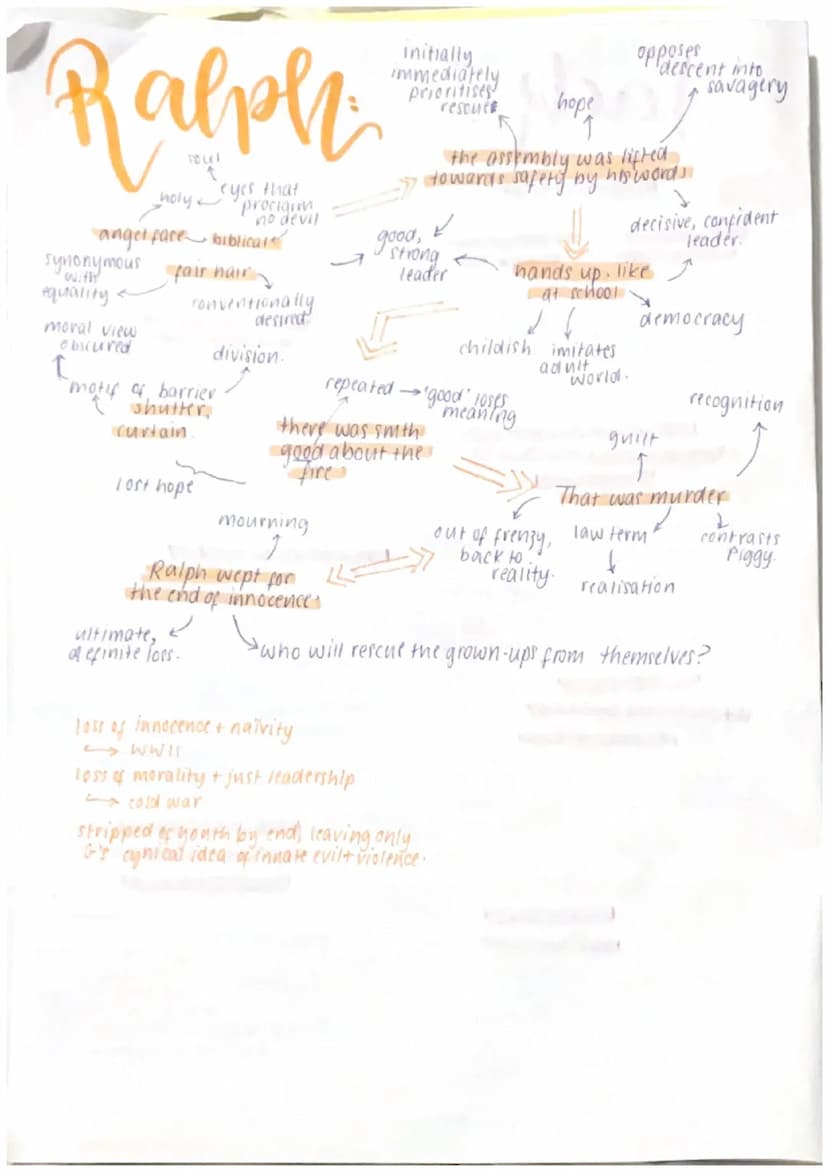 Ralph:
initially
immediately
prioritises
rescue
hope
opposes
descent into
savagery
the assembly was lifted
towards safety by his words
soul
holy
eyes that
proclaim
no devil
angel face
biblical
good,
strong
leader
decisive, confident
leader.
synonymous
with
equality
fair hair
conventionally
desired
hands up. like
at school
democracy
childish
imitates
adult
world.
moral view
obscured
division.
motif of barrier
shutter,
curtain
repeated
'good' loses
meaning
there was smth
good about the
fire
recognition
guilt
lost hope
That was murder
out of frenzy,
back to
reality.
law term
realisation
contrasts
Piggy.
mourning
Ralph wept for
the end of innocence
ultimate,
definite loss.
who will rescue the grown-ups from themselves?
loss of innocence + naivity
WWII
loss of morality + just leadership
cold war
stripped of youth by end, leaving only
G's cynical idea of innate evil + violence.